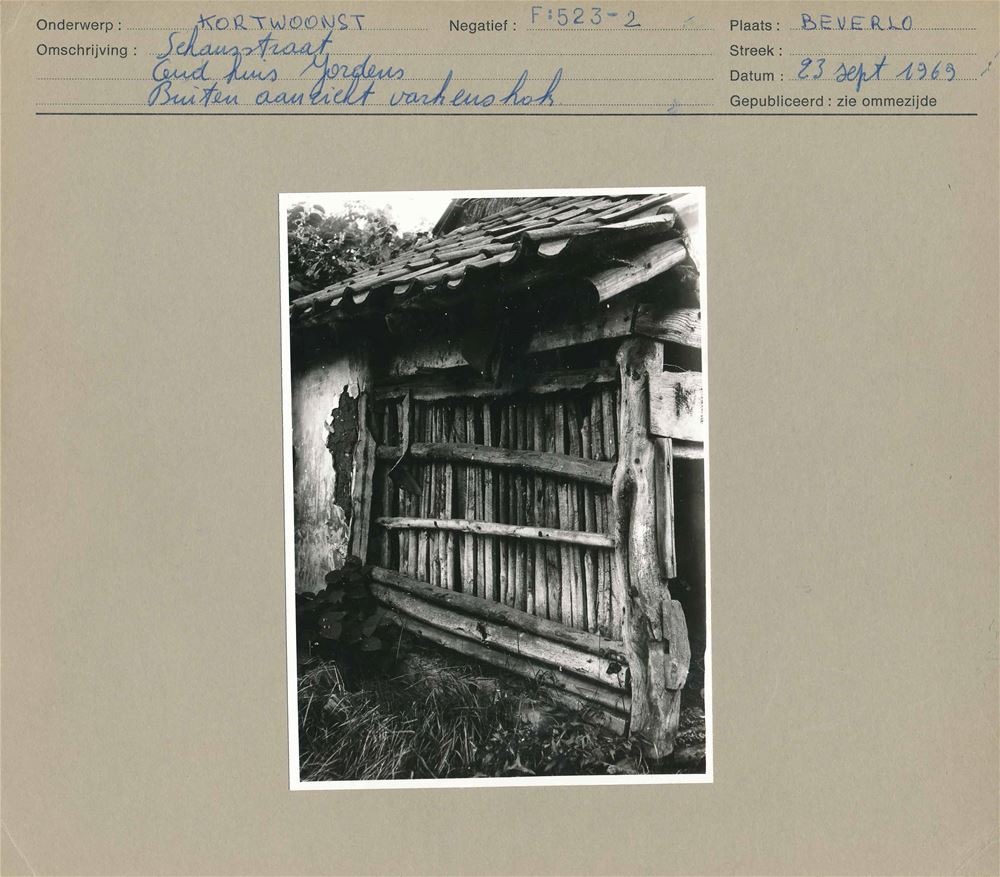 Onderwerp : KORTWOONST Negatief : F:523-2 Plaats : BEVERLO
Omschrijving : Schansstraat Streek :
Oud huis Jordens Datum : 23 sept 1969
Buiten aanzicht varkenshok Gepubliceerd : zie ommezijde